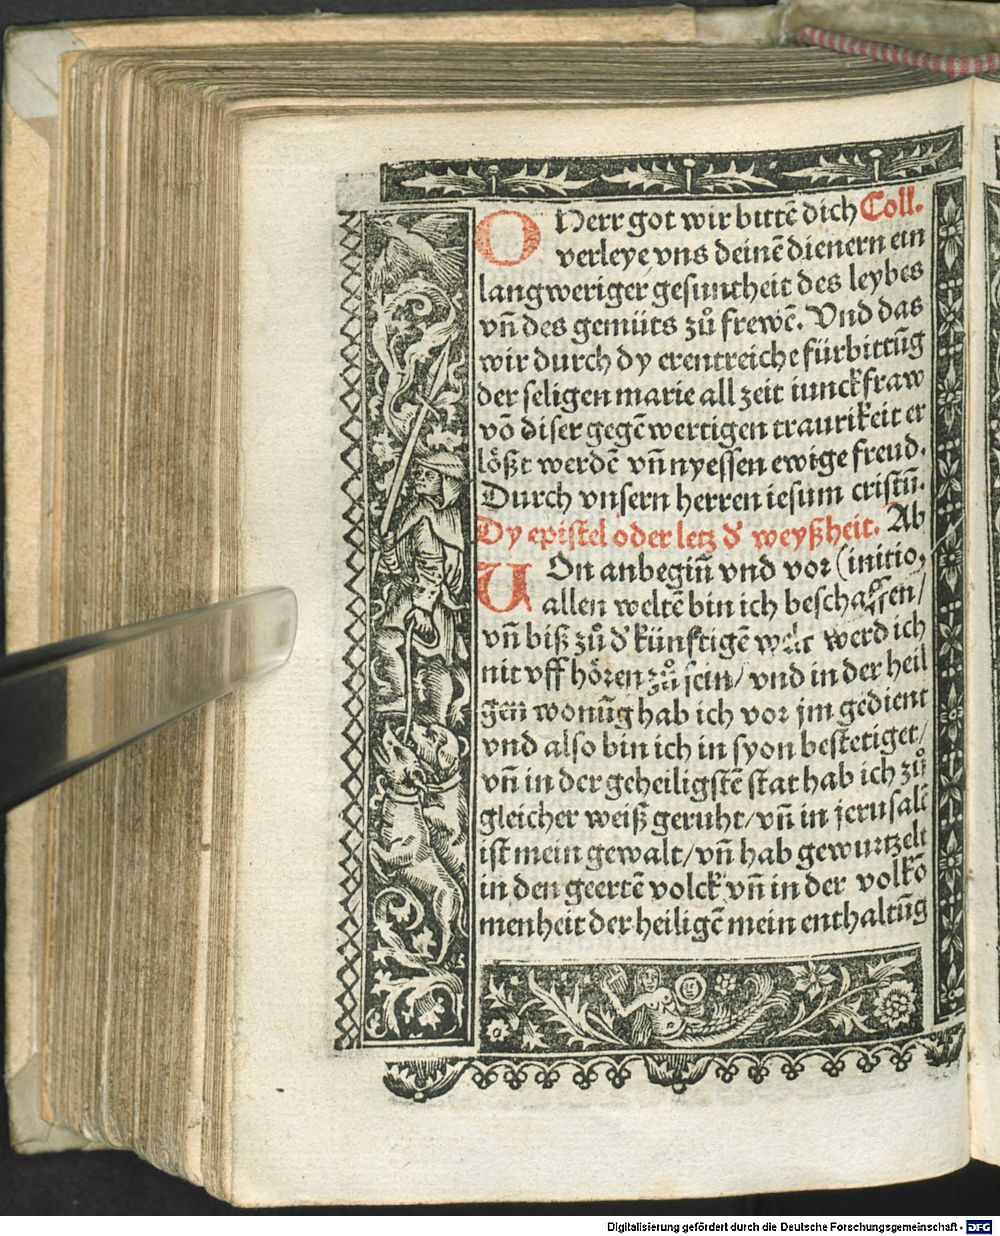 O Herr got wir bittē dich Coll.
verleye/ vns deinē dienern ein
langweriger gesuntheit des leybes
vn̄ des gemüts zů frewē. Vnd das
wir durch dy erentreiche fürbittūg
der seligen marie all zeit iunckfraw
vō diser gegēwertigen traurikeit er
lößt werdē vn̄ nyessen ewige freud.
Durch vnsern herren iesum cristū.
Dy epistel oder letz d' weyßheit. Ab
VOn anbegiñ vnd vor (initio,
allen weltē bin ich beschaffen/
vn̄ biß zů d' künftigē welt werd ich
nit vff hören zů sein/ vnd in der heil
gen wonūg hab ich vor jm gedient
vnd also bin ich in syon bestetiget/
vn̄ in der geheiligstē stat hab ich zů
gleicher weiß geruht/ vn̄ in jerusalē
ist mein gewalt/ vn̄ hab gewurtzelt
in den geertē volck vn̄ in der volkō
menheit der heiligē mein enthaltūg
Digitalisierung gefördert durch die Deutsche Forschungsgemeinschaft - DFG